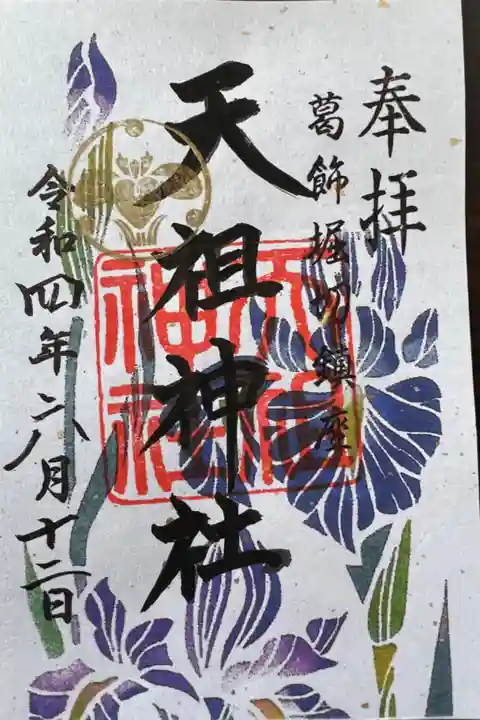 奉拝
葛飾堀切鎮座
天祖神社
令和四年六月十二日
天祖
神社